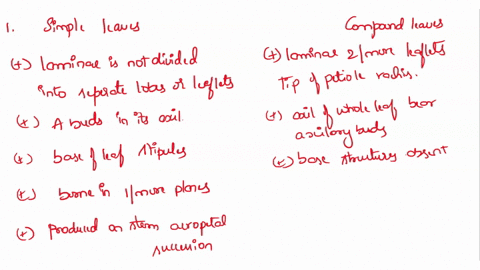 1. Simple leaves
(+) laminae is not divided
into separate lobes or leaflets
(+) A buds in its axil.
(+) base of leaf stipules
(+) borne in 1/more planes
(+) produced on stem acropetal
succession
Compound leaves
(+) laminae 2/more leaflets
Tip of petiole rachis.
(+) axil of whole leaf bear
axillary buds
(+) base structures absent